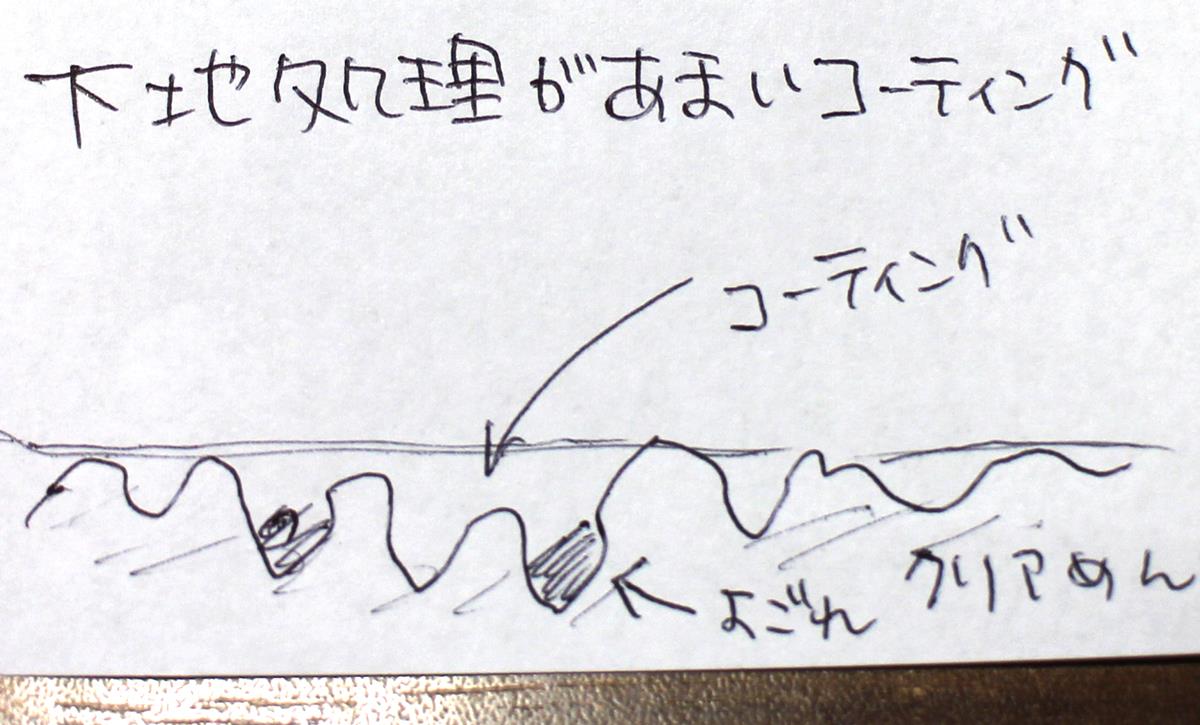 下地処理があまいコーティング
コーティング
よごれ
クリアめん